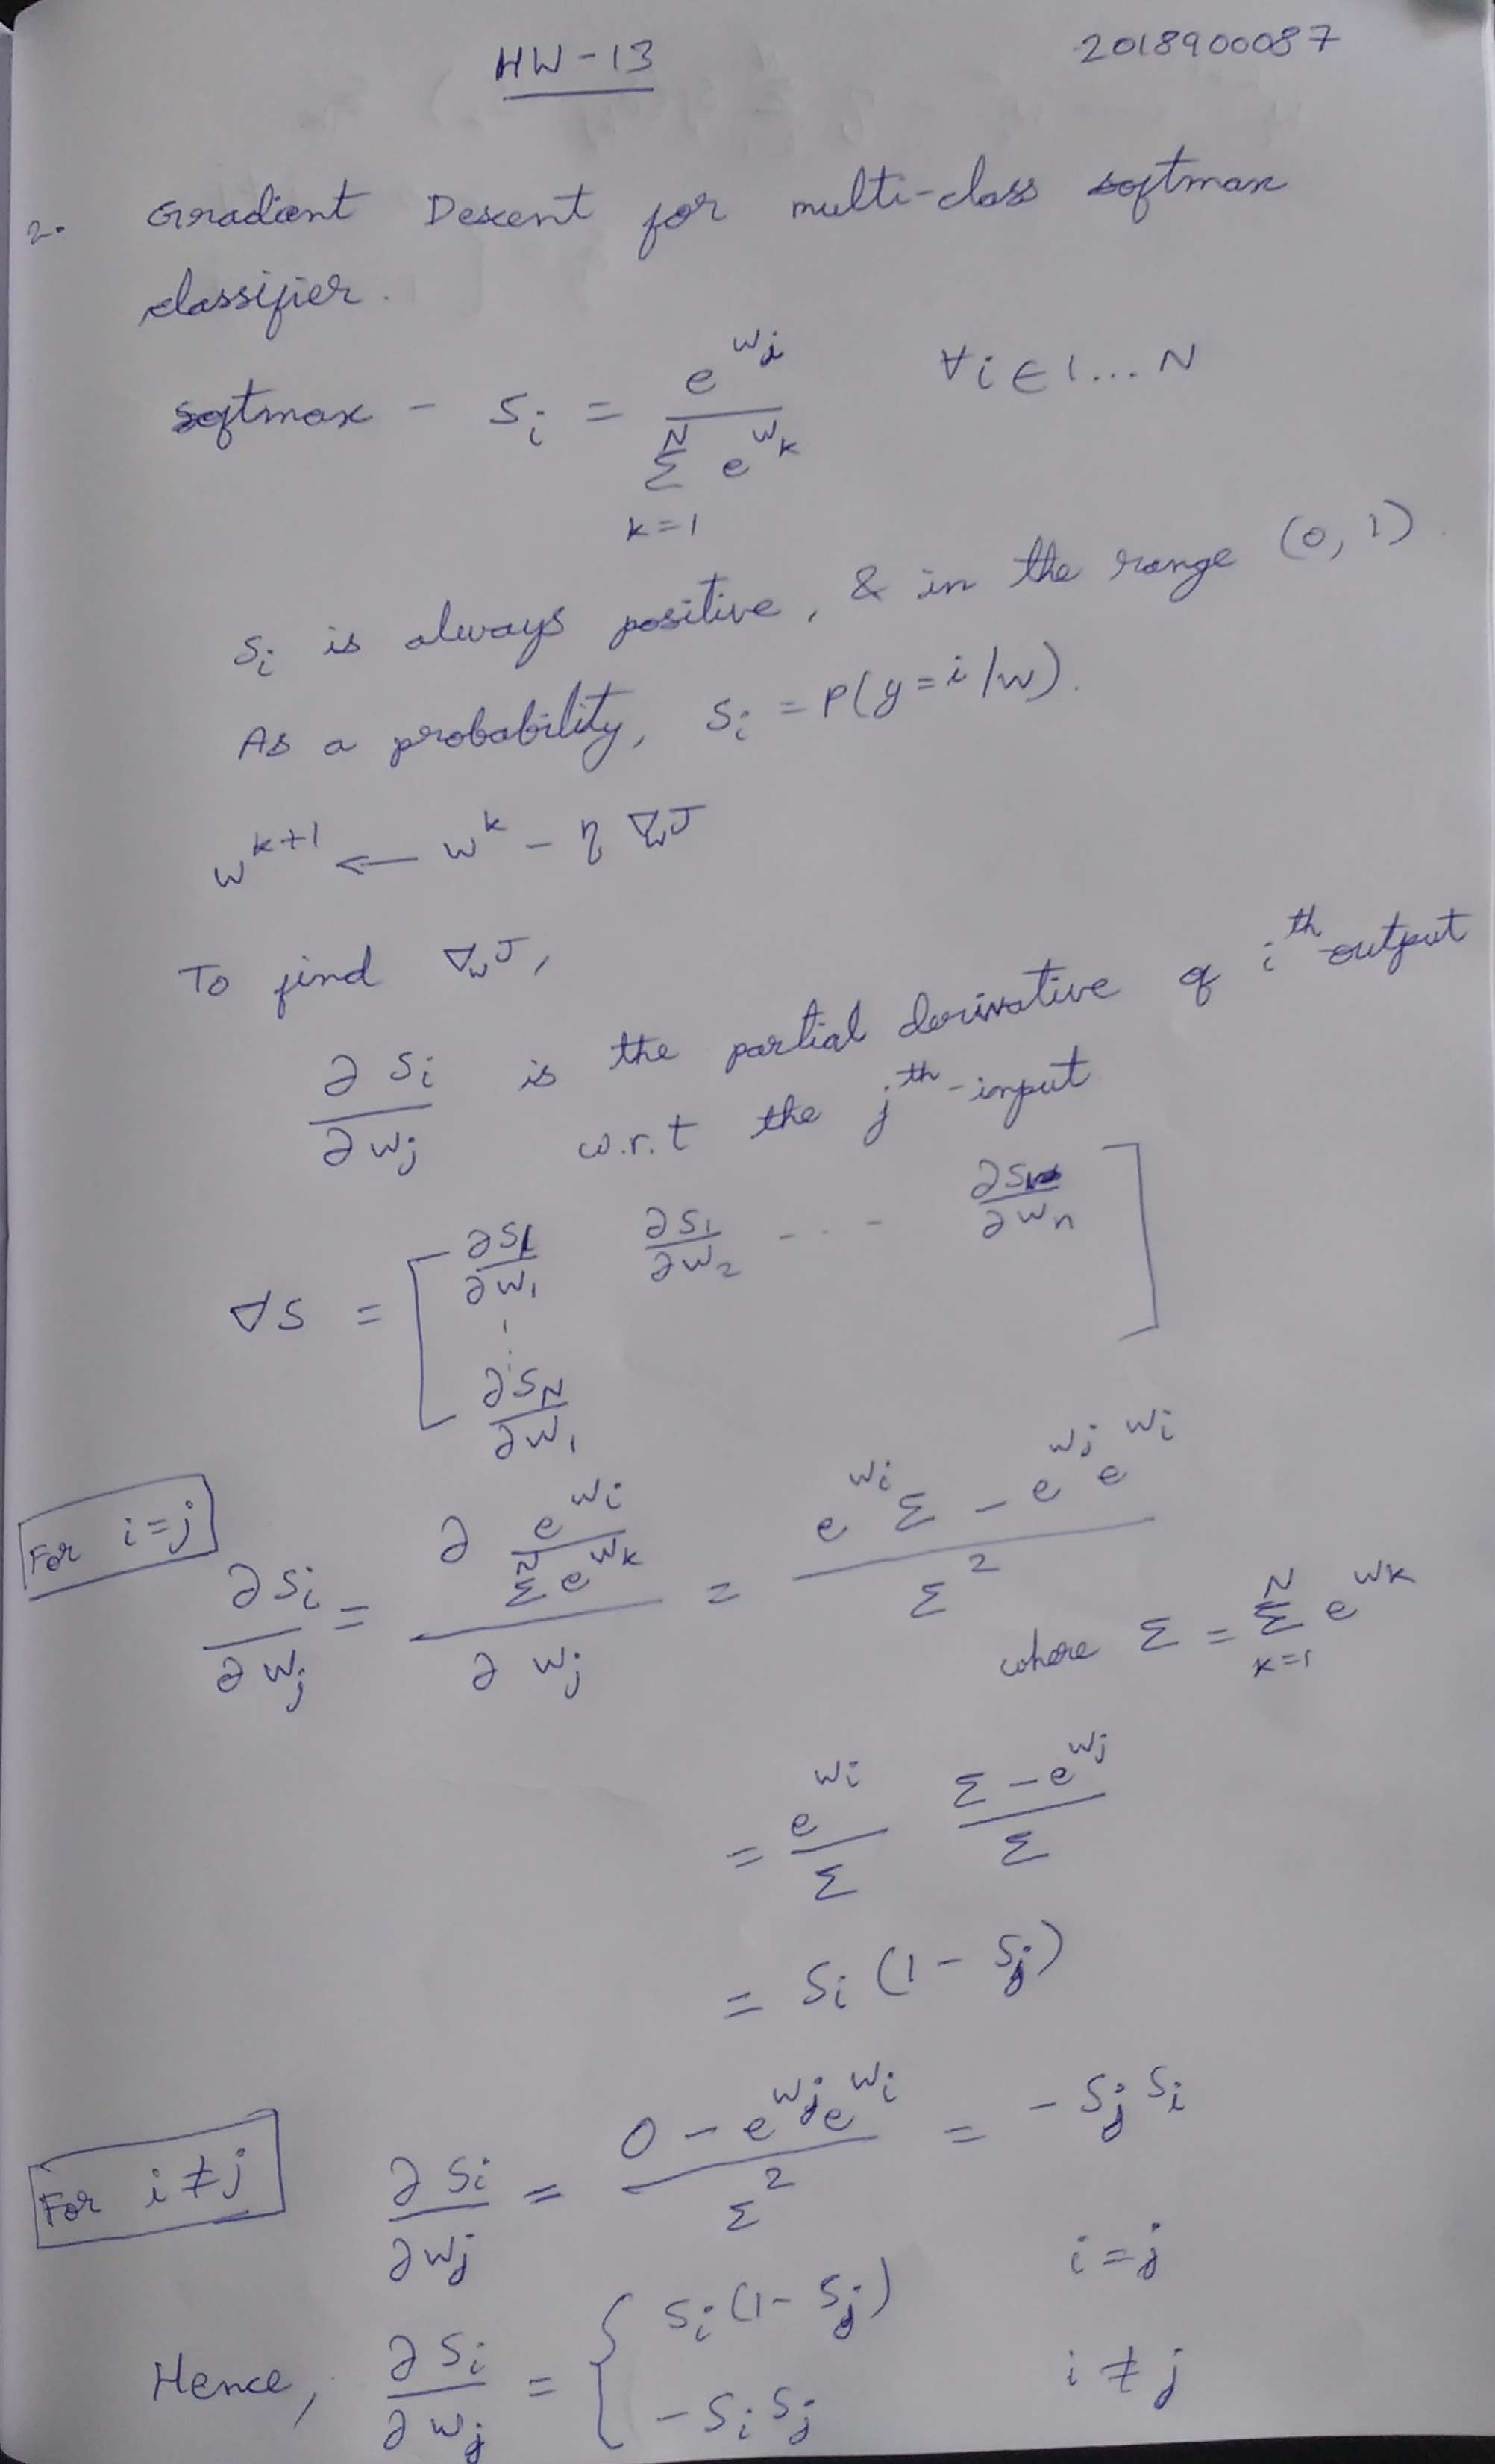 HW-13
2018900087
2. Gradient Descent for multi-class softmax
classifier.
softmax - S_i = e^{w_i} / Σ_{k=1}^{N} e^{w_k} ∀i ∈ 1...N
S_i is always positive, & in the range (0, 1).
As a probability, S_i = P(y=i/w).
w^{k+1} ← w^k - η ∇_w J
To find ∇_w J,
∂S_i / ∂w_j is the partial derivative of i^{th} output
w.r.t the j^{th}-input
∇S = [ ∂S_1/∂w_1 ∂S_1/∂w_2 ... ∂S/∂w_n
⋮
∂S_N/∂w_1 ]
For i=j
∂S_i/∂w_j = ∂ (e^{w_i} / Σ^N e^{w_k}) / ∂w_j = (e^{w_i} Σ - e^{w_j} e^{w_i}) / Σ^2
where Σ = Σ_{k=1}^{N} e^{w_k}
= e^{w_i}/Σ (Σ - e^{w_j})/Σ
= S_i (1 - S_j)
For i≠j ∂S_i/∂w_j = (0 - e^{w_j} e^{w_i}) / Σ^2 = - S_j S_i
Hence, ∂S_i/∂w_j = { S_i (1 - S_j) i=j
- S_i S_j i≠j